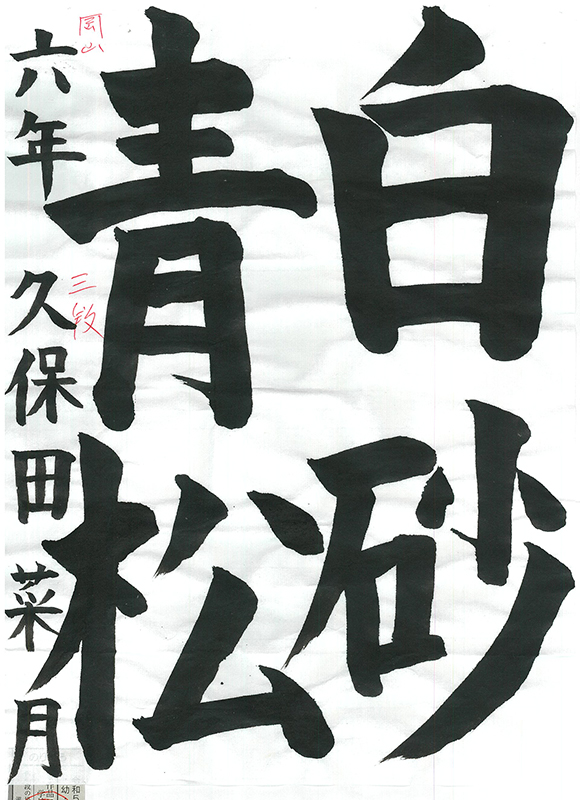 白砂
青松
岡山
三段
六年 久保田菜月